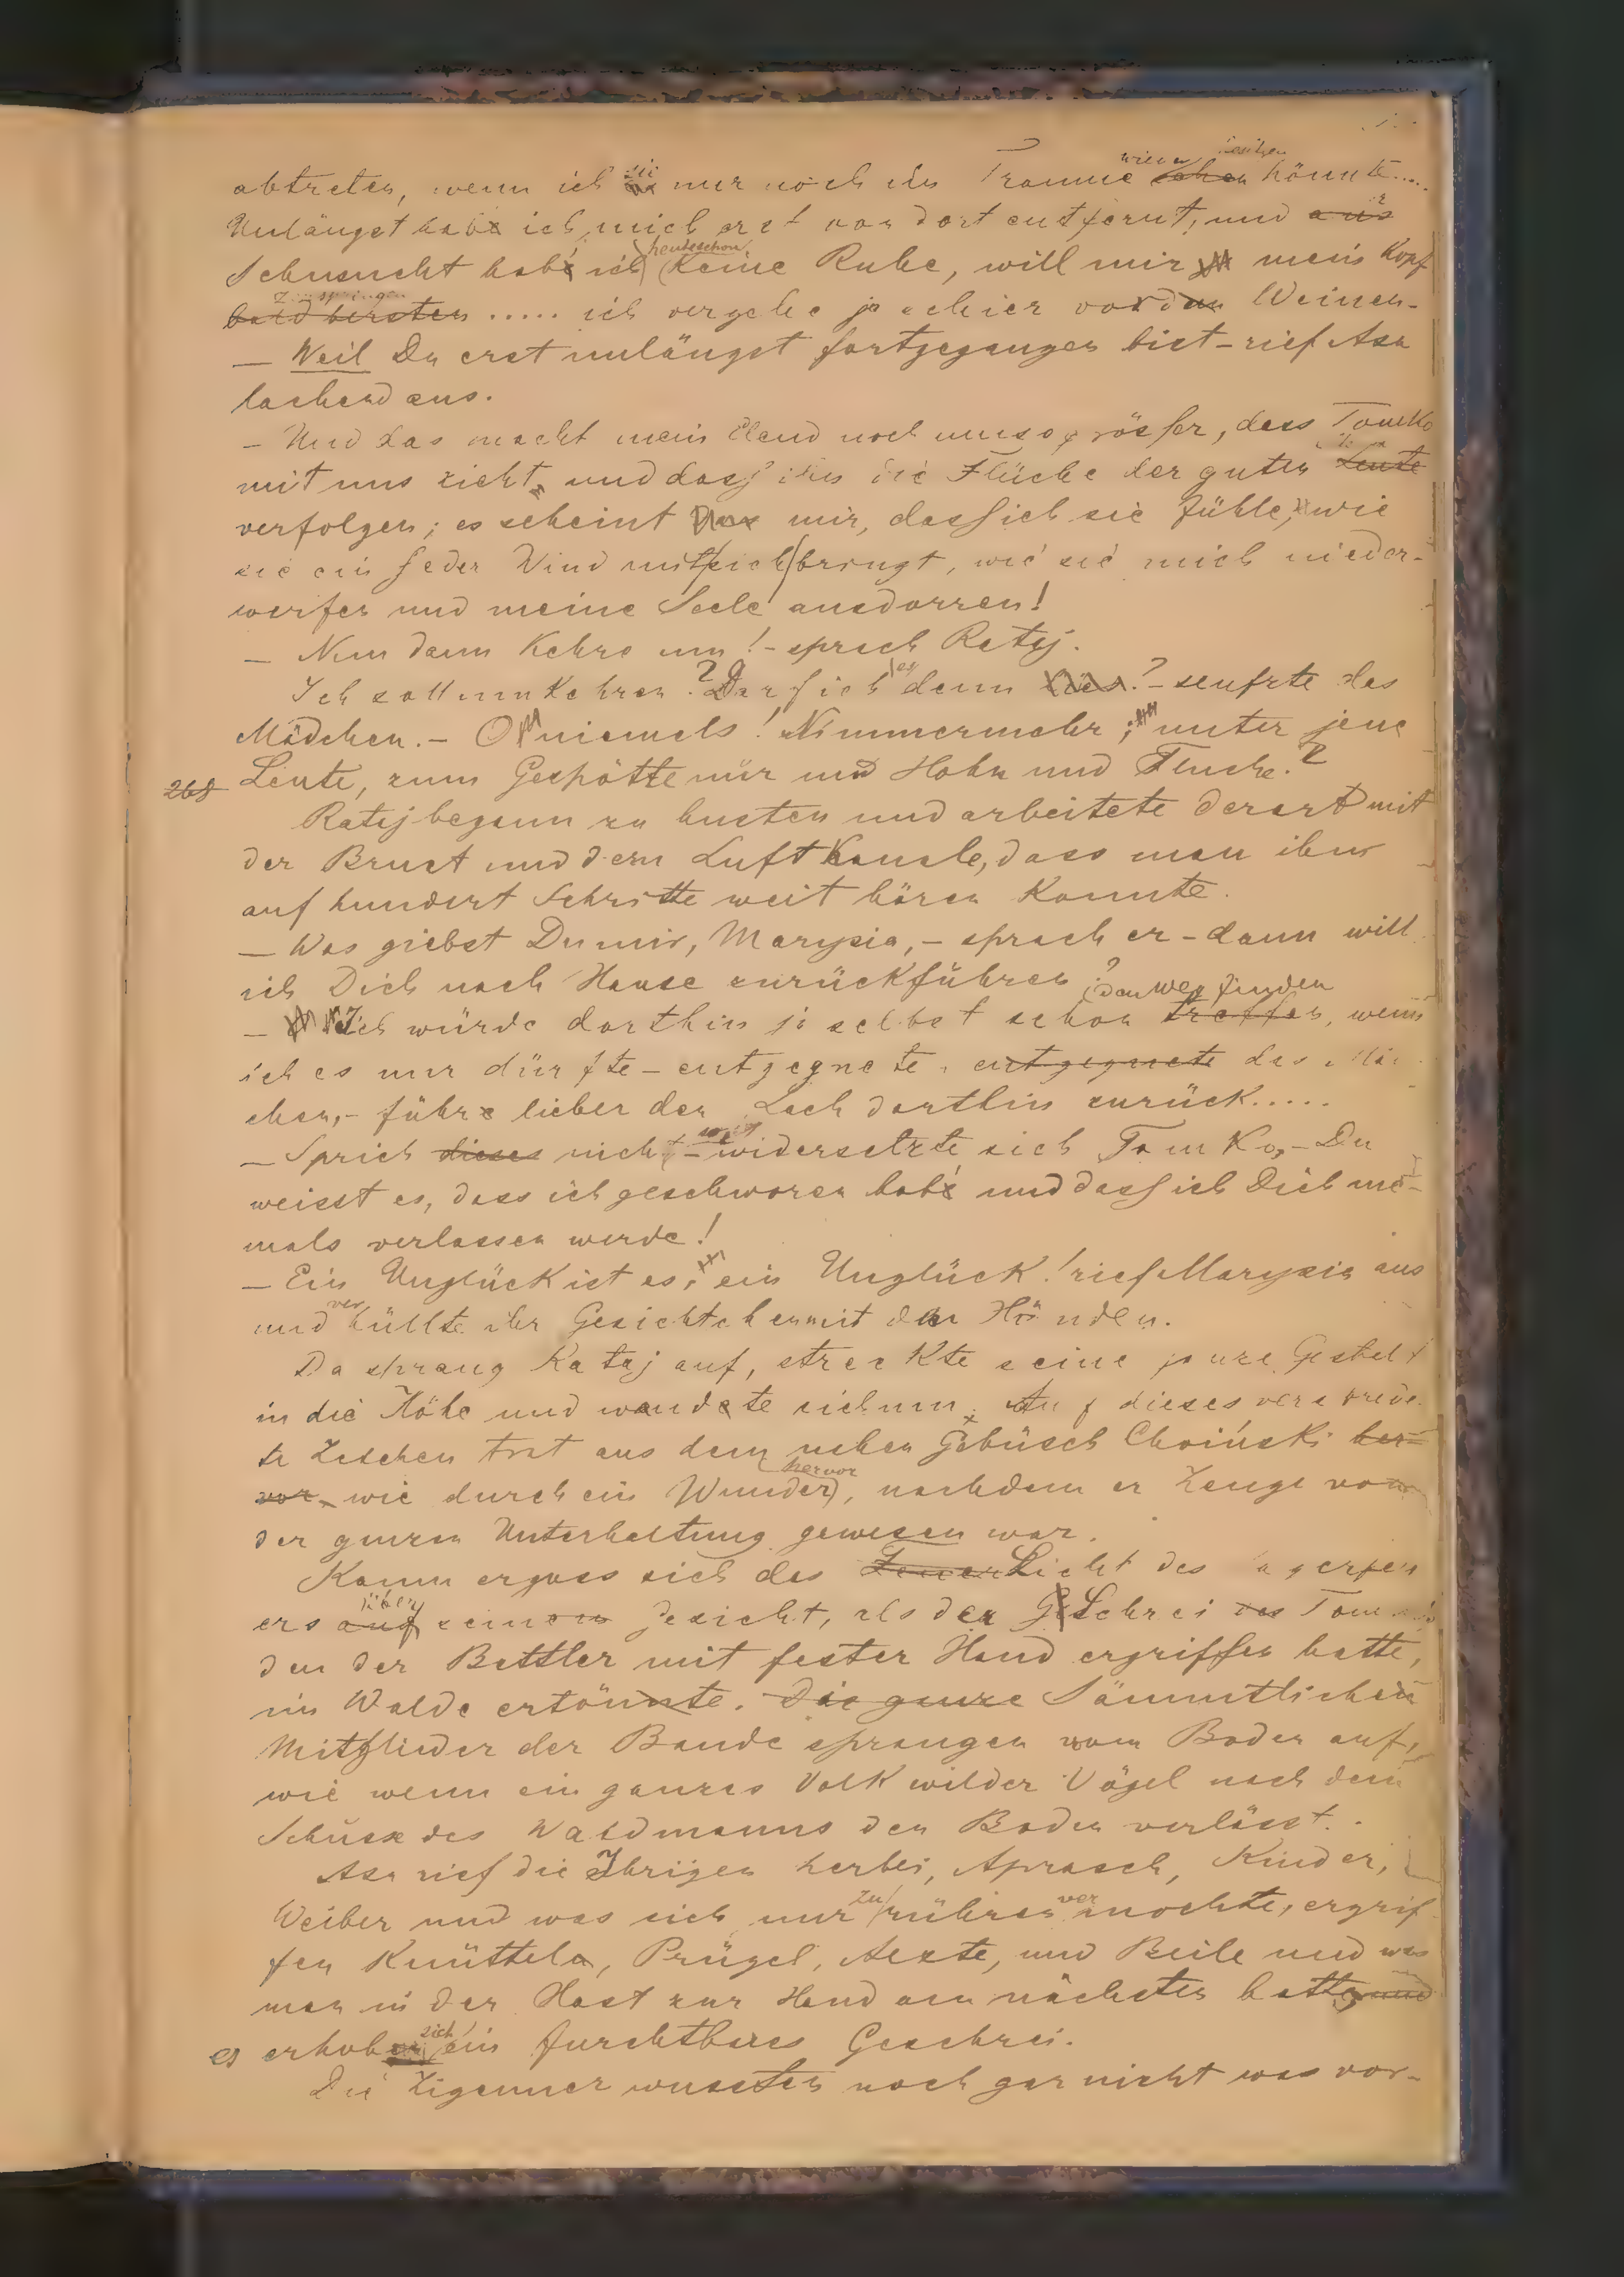 abtreten, wenn ich sie nur noch im Traume sehen könnte.....
Unlängst hab' ich mich erst von dort entfernt, und aus
Sehnsucht hab' ich heute schon keine Ruhe, will mir mein Kopf
bald bersten ..... ich vergehe ja schier vor dem Weinen.
— Weil Du erst unlängst fortgegangen bist – rief Asa
lachend aus.
– Und das macht mein Elend noch umso grösser, dass Tomko
mit uns zieht, und dass ihn die Flüche der guten Leute
verfolgen; es scheint mir, dass ich sie fühle, wie
sie ein jeder Wind mit sich bringt, wie sie mich nieder-
werfen und meine Seele ausdorren!
— Nun dann kehre um! – sprach Rataj.
Ich soll umkehren? Darf ich es denn ? – seufzte das
Mädchen. – O niemals! Nimmermehr; unter jene
268 Leute, zum Gespötte nur und Hohn und Fluche.?
Rataj begann zu husten und arbeitete derart mit
der Brust und dem Luftkanale, dass man ihn
auf hundert Schritte weit hören konnte.
— Was giebst Du mir, Marysia, – sprach er – dann will
ich Dich nach Hause zurückführen?
den Weg finden
— Ich würde dorthin ja selbst schon treffen, wenn
ich es nur dürfte – entgegnete, entgegnete das Mäd-
chen, – führe lieber den Lach dorthin zurück.....
— Sprich dieses nicht – widersetzte sich Tomko, – Du
weisst es, dass ich geschworen hab' und dass ich Dich nie-
mals verlassen werde!
— Ein Unglück ist es, ein Unglück! rief Marysia aus
und verhüllte ihr Gesichtchen mit den Händen.
Da sprang Rataj auf, streckte seine ganze Gestalt
in die Höhe und wandte sich um. Auf dieses verabrede-
te Zeichen trat aus dem nahen Gebüsch Choiński her-
vor wie durch ein Wunder hervor, nachdem er Zeuge von
der ganzen Unterhaltung gewesen war.
Kaum ergoss sich das Feuer Licht des Lagerfeu
ers auf über seinem Gesicht, als der Schrei des Tomko
den der Bettler mit fester Hand ergriffen hatte,
im Walde ertönte. Die ganze Sämmtliche
Mitglieder der Bande sprangen vom Boden auf,
wie wenn ein ganzes Volk wilder Vögel nach dem
Schuss des Waldmanns den Boden verlässt.
Asa rief die Ihrigen herbei, Aprasch, Kinder,
Weiber und was sich nur zu rühren vermochte, ergrif
fen Knüttel, Prügel, Aexte, und Beile und was
man in der Hast zur Hand am nächsten hatte, und
es erhob sich ein furchtbares Geschrei.
Die Zigeuner wussten noch gar nicht was vor-